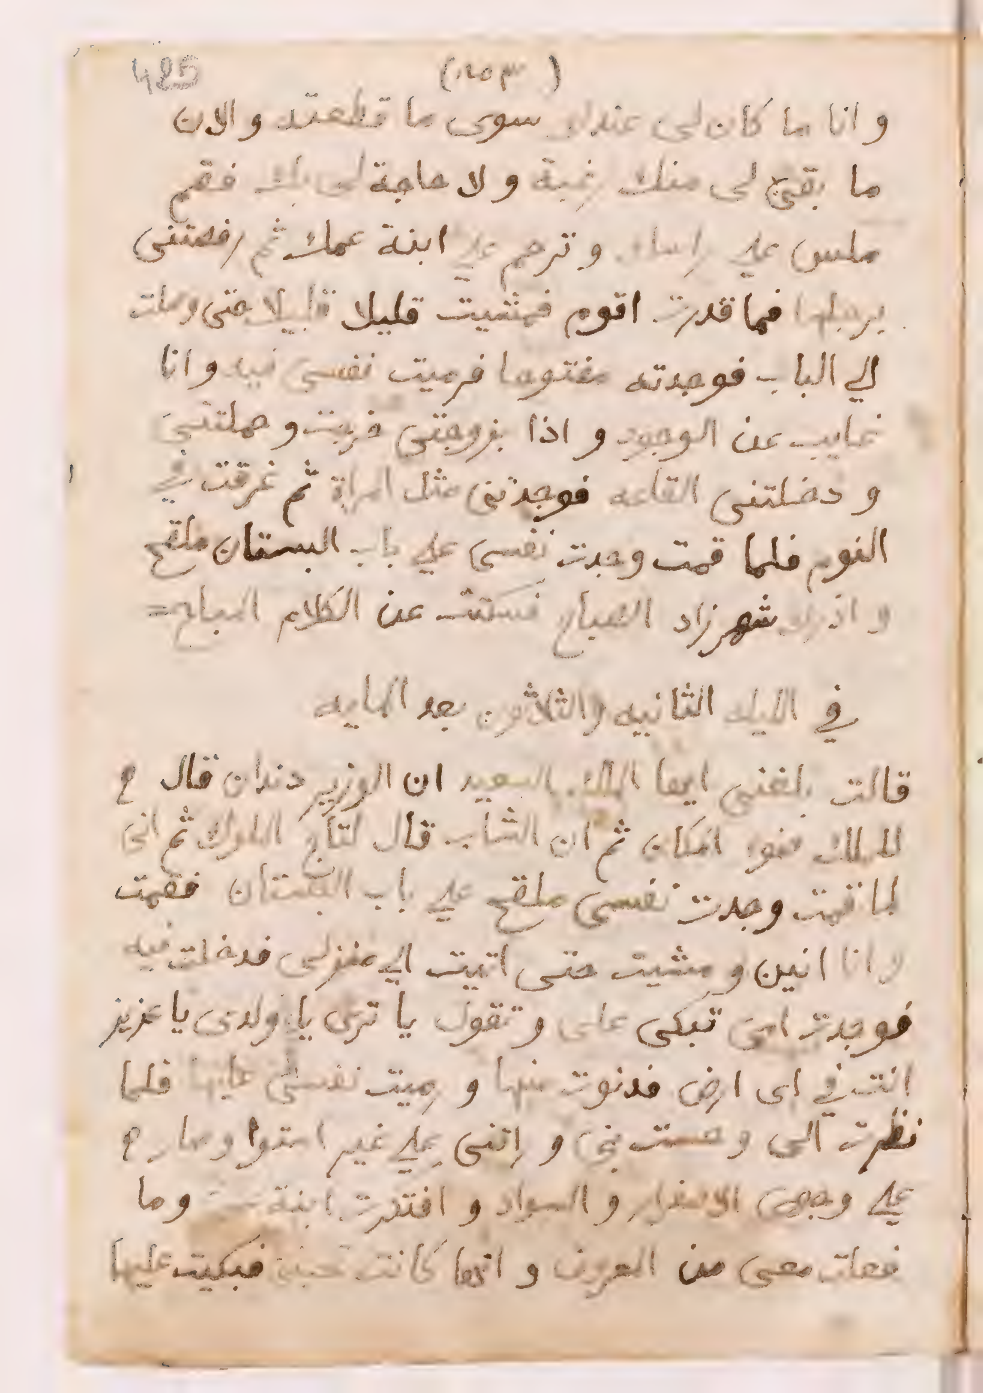 425
(١٠٥٣)
وانا ما كان لى عندك سوى ما قطعته والان
ما بقى لى منك رغبة ولا حاجة لى بك فقم
ملس على راسك وترحم على ابنة عمك ثم رفصتنى
برجلها فما قدرت اقوم فمشيت قليلا قليلا حتى وصلت
الي الباب فوجدته مفتوحا فرميت نفسى فيه وانا
غايب عن الوجود واذا بزوجتى خرجت وحملتنى
ودخلتنى القاعه فوجدتنى مثل امراة ثم غرقت فى
النوم فلما قمت وجدت نفسى على باب البستان ملقح
وادرك شهرزاد الصباح فسكتت عن الكلام المباح
في الليله الثانيه والثلاثون بعد المايه
قالت بلغنى ايها الملك السعيد ان الوزير دندان قال
للملك ضوء المكان ثم ان الشاب قال لتاج الملوك ثم انى
لما قمت وجدت نفسى ملقح على باب البستان فقمت
وانا انين ومشيت حتى اتيت الى منزلى فدخلت فيه
فوجدت امى تبكى على وتقول يا ترى يا ولدى يا عزيز
انت في اى ارض فدنوت منها ورميت نفسى عليها فلما
نظرت الى وحست بى وراتنى على غير استوا وصار
على وجهى الاصفرار والسواد وافتكرت ابنة وما
فعلت معى من المعروف وانها كانت تحبنى فبكيت عليها